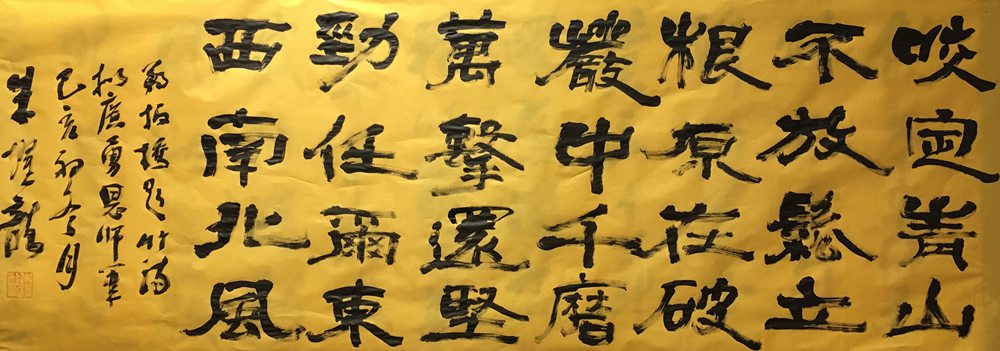 咬定青山
不放鬆立
根原在破
巖中千磨
萬擊還堅
勁任爾東
西南北風
鄭板橋題竹詩
擬廣勇恩師筆
己亥初冬月
朱龍